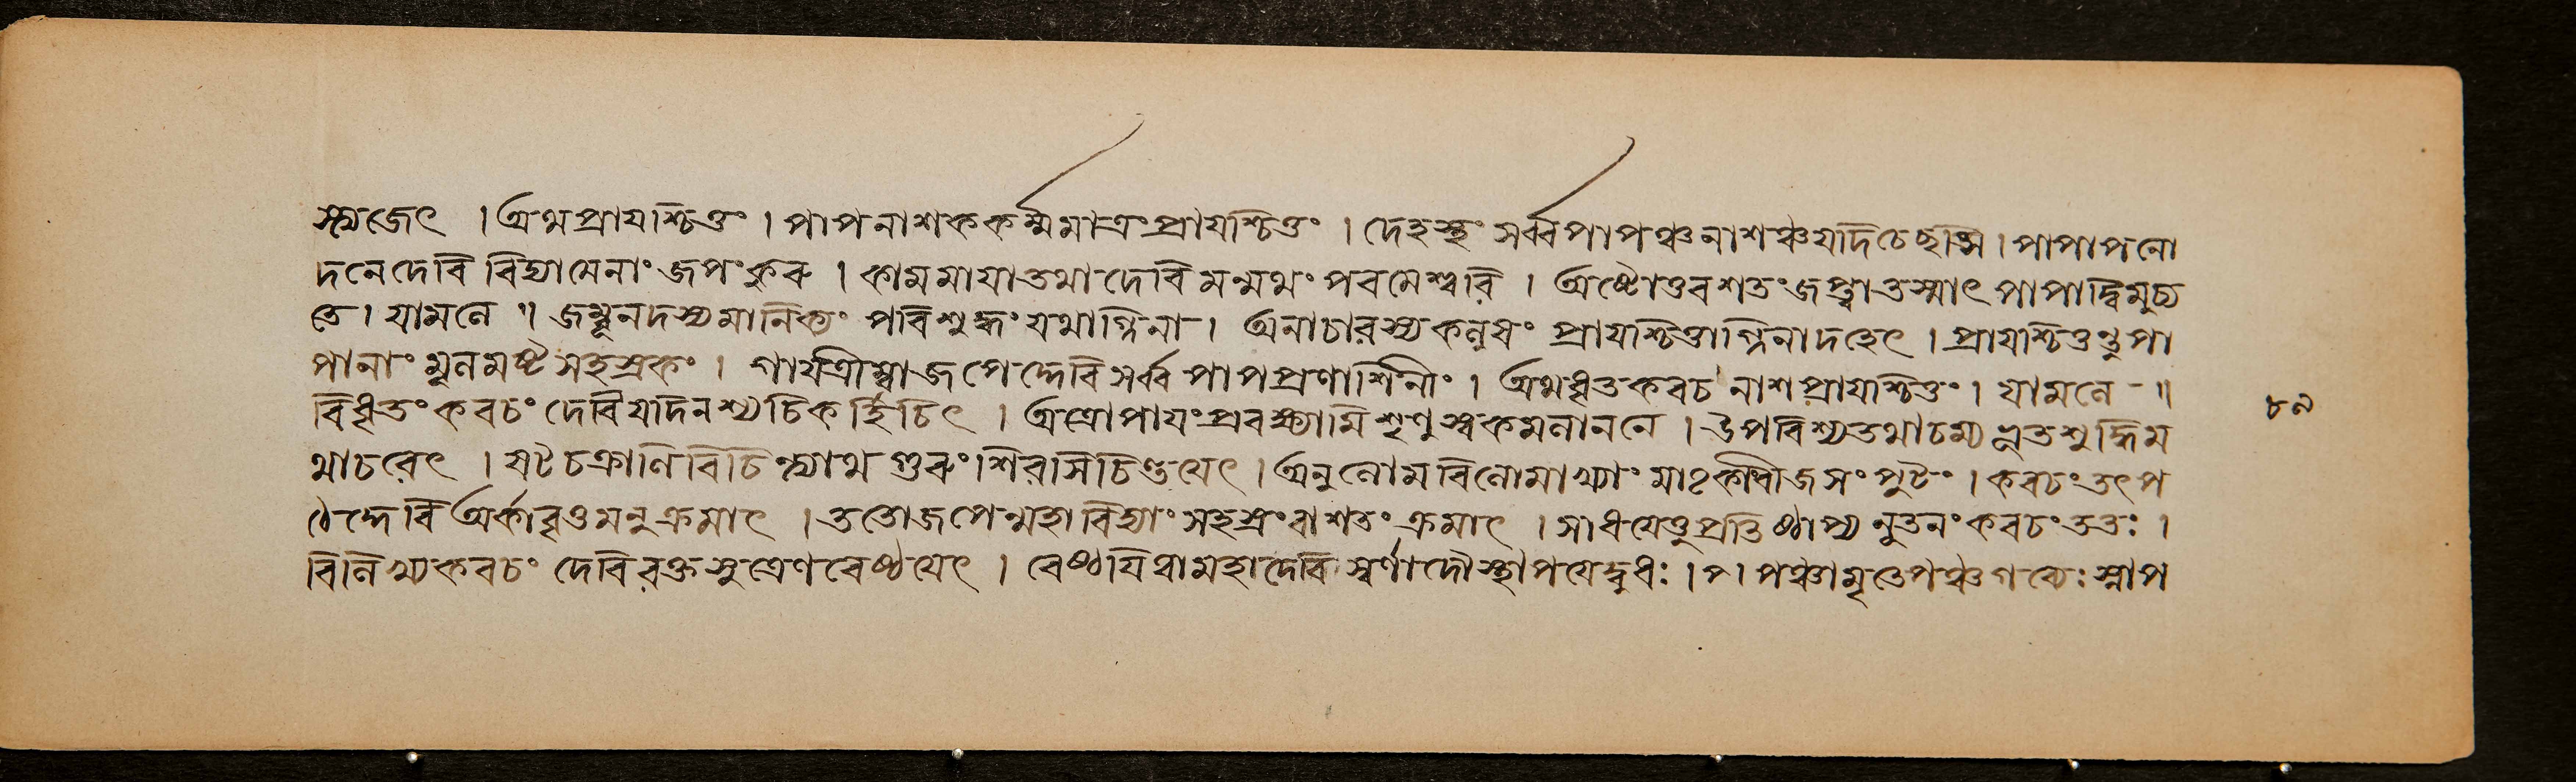 স্ত্যজেৎ । অথ প্রায়শ্চিত্তং । পাপনাশককর্ম্মমাত্রং প্রায়শ্চিত্তং । দেহস্থং সর্ব্বপাপঞ্চ নাশঞ্চ যদি চেছসি । পাপাপনো
দনে দেবি বিদ্যামেনাং জপং কুৰু । কামমায়া তথা দেবি মন্মথং পৰমেশ্বরি । অষ্টোত্তৰশতং জপ্ত্বা তস্মাৎ পাপাদ্বিমুচ্য
তে । যামলে ॥ জম্বূনদস্য মালিন্যং পৰিশুদ্ধং যথাগ্নিনা । অনাচারস্য কলুষং প্রায়শ্চিত্তাগ্নিনা দহেৎ । প্রায়শ্চিত্তন্তু পা
পানাং মূলমষ্টসহস্রকং । গায়ত্রীম্বা জপেদ্দেবি সর্ব্বপাপপ্রণাশিনীং । অথ ধৃতকবচনাশপ্রায়শ্চিত্তং । যামলে ॥
বিধৃতং কবচং দেবি যদি নশ্যচি কর্হিচিৎ । অত্রোপায়ং প্রবক্ষ্যামি শৃণুস্ব কমলাননে । উপবিশ্য তথাচম্য ভূতশুদ্ধিম
থাচৰেৎ । ষটচক্রাণি বিচিন্ত্যাথ গুৰুং শিরসি চিণ্তয়েৎ । অনুলোমবিলোমাভ্যাং মাতৃকাবীজসংপুটং । কবচং তৎ প
ঠেদ্দেবি অর্কাবৃত্তমনুক্রমাৎ । ততো জপেন্মহাবিদ্যাং সহস্রং বা শতং ক্রমাৎ । সাধয়েত্তু প্রতিষ্ঠাপ্য নুতনং কবচং ততঃ ।
বিলিখ্য কবচং দেবি ৰক্তসুত্রেণ বেষ্টয়েৎ । বেষ্টয়িত্বা মহাদেবি স্বর্ণাদৌ স্থাপয়েদ্বুধঃ । পঞ্চামৃতে পঞ্চগব্যেঃ স্নাপ
৮৯